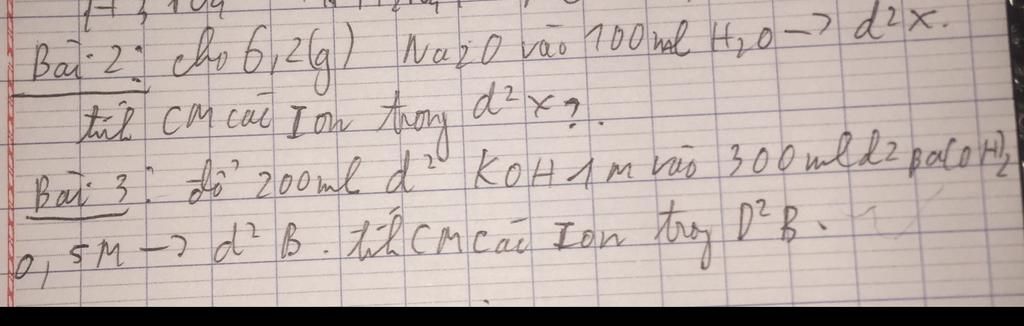 Bài 2: cho 6,2(g) Na2O vào 100ml H2O → d² x.
tính CM các Ion trong d² x?.
Bài 3: đổ 200ml d² KOH 1M vào 300ml d2 Ba(OH)2
0,5M → d² B. tính CM các Ion trog D² B.